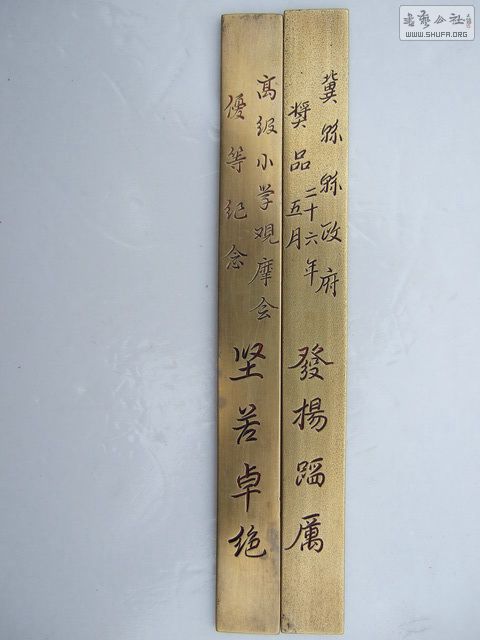 冀縣縣政府
獎品二十六年
五月
發揚蹈厲
高级小学观摩会
優等纪念
坚苦卓绝
書藝公社
WWW.SHUFA.ORG